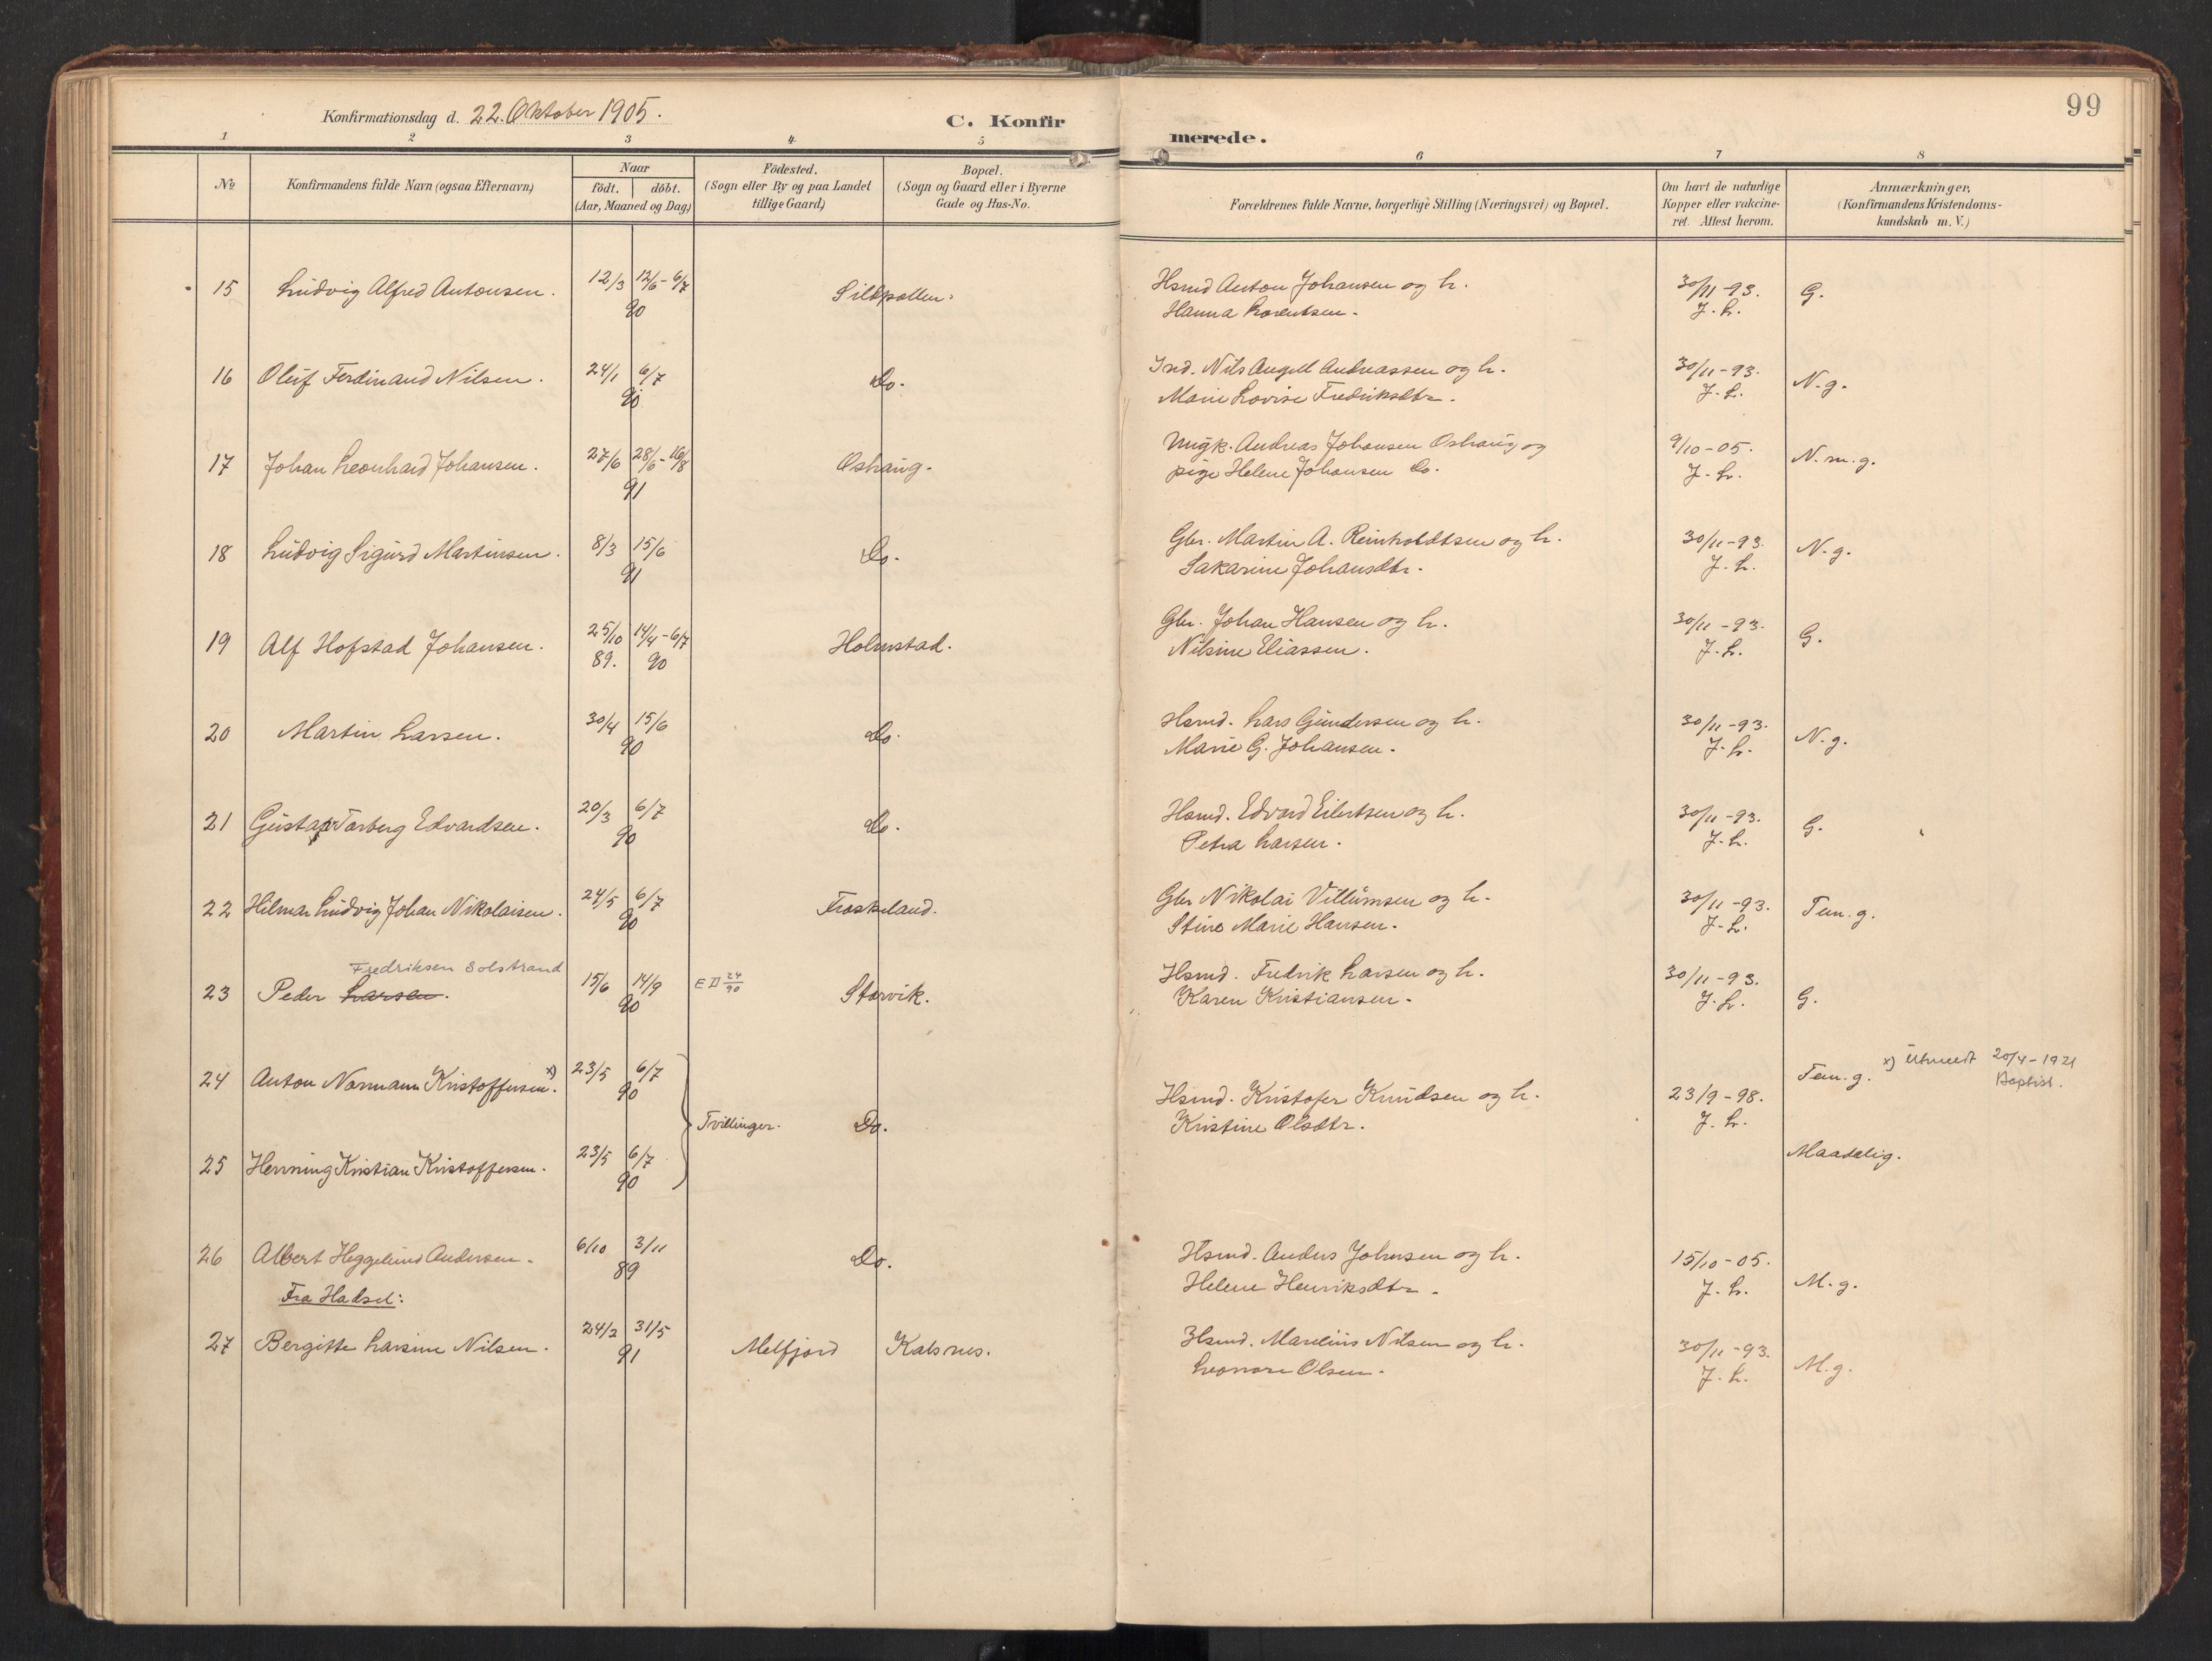 99
Konfirmationsdag d. 22. Oktober 1905.
C. Konfirmerede.
1 2 3 4 5 6 7 8
No
Konfirmandens fulde Navn (ogsaa Efternavn)
Naar
födt. döbt.
(Aar, Maaned og Dag)
Födested.
(Sogn eller By og paa Landet
tillige Gaard)
Bopæl.
(Sogn og Gaard eller i Byerne
Gade og Hus-No.
Forældrenes fulde Navne, borgerlige Stilling (Næringsvei) og Bopæl.
Om havt de naturlige
Kopper eller vakcine-
ret. Attest herom.
Anmærkninger,
(Konfirmandens Kristendoms-
kundskab m. V.)
15 Ludvig Alfred Antonsen. 12/3 12/6 - 6/7 Sildpollen. Hsmd Anton Johansen og h. 30/11-93. G.
90 Hanna Lorentsen. J. L.
16 Oluf Ferdinand Nilsen. 24/1 6/7 Do. Ind. Nils Angell Andreassen og h. 30/11-93. N.g.
90 Marie Lovise Fredriksdtr. J. L.
17 Johan Leonhard Johansen. 27/6 28/6 - 16/8 Oshaug. Ungk. Andreas Johansen Oshaug og 9/10-05. N.m.g.
91 pige Helene Johansen Do. J. L.
18 Ludvig Sigurd Martinsen. 8/3 15/6 Do. Gbr. Martin A. Reinholdtsen og h. 30/11-93. N.g.
91 Sakarine Johansdtr. J. L.
19 Alf Hofstad Johansen. 25/10 14/4 - 6/7 Holmstad. Gbr. Johan Hansen og h. 30/11-93. G.
89. 90 Nilsine Eliassen. J. L.
20 Martin Larsen. 30/4 15/6 Do. Hsmd. Lars Gundersen og h. 30/11-93. N.g.
90 Marie G. Johansen. J. L.
21 Gustav Torberg Edvardsen. 20/3 6/7 Do. Hsmd. Edvard Eilertsen og h. 30/11-93. G.
90 Petra Larsen. J. L.
22 Hilmar Ludvig Johan Nikolaisen. 24/5 6/7 Froskeland. Gbr Nikolai Villumsen og h. 30/11-93. Tem. g.
90 Stine Marie Hansen. J. L.
Fredriksen Solstrand
23 Peder Larsen. 15/6 14/9 E II 24/90 Storvik. Hsmd. Fredrik Larsen og h. 30/11-93. G.
90 Karen Kristiansen. J. L.
24 Anton Normann Kristoffersen x). 23/5 6/7 Tem. g. x) Utmeldt 20/4-1921
90 Baptist.
Tvillinger. Do. Hsmd. Kristofer Knudsen og h. 23/9-98.
Kristine Olsdtr. J. L.
25 Henning Kristian Kristoffersen. 23/5 6/7 Maadelig.
90
26 Albert Heggelund Andersen. 6/10 3/11 Do. Hsmd. Anders Johnsen og h. 15/10-05. M.g.
89 Helene Henriksdtr. J. L.
Fra Hadsel:
27 Bergitte Larsine Nilsen. 24/2 31/5 Melfjord Kalsnes. Hsmd. Marelius Nilsen og h. 30/11-93. M.g.
91 Leonore Olsen. J. L.